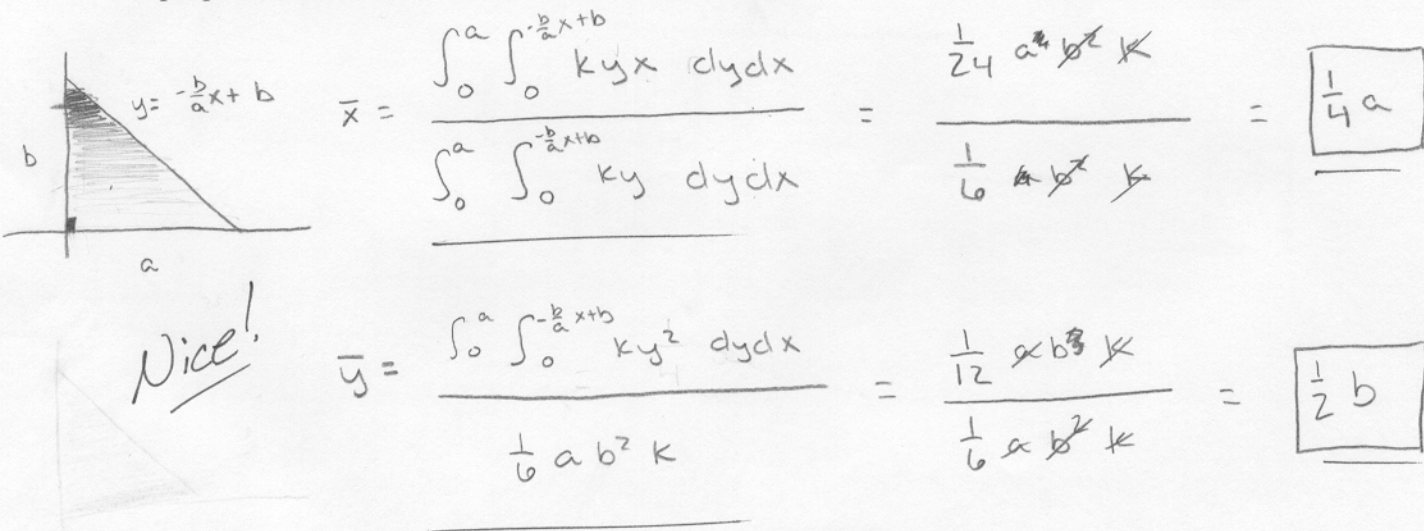 y = -b/a x + b
b
a
x̄ = ∫₀^a ∫₀^(-b/a x+b) kyx dydx / ∫₀^a ∫₀^(-b/a x+b) ky dydx = 1/24 a² b² k / 1/6 a b² k = 1/4 a
Nice!
ȳ = ∫₀^a ∫₀^(-b/a x+b) ky² dydx / 1/6 ab² k = 1/12 a b³ k / 1/6 a b² k = 1/2 b